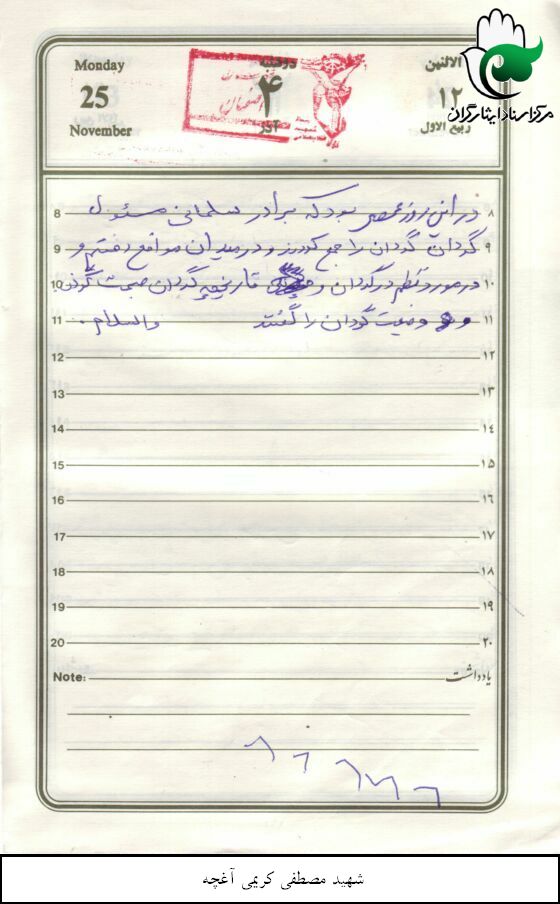 Monday دوشنبه الاثنین
25 ۴ ۱۲
November آذر ربیع الاول
مرکز اسناد ایثارگران
8 در این روز عصر بود که برادر سلمانی مسئول ۸
9 گردان گردان را جمع کردند و در میدان موانع رفتیم و ۹
10 در مورد نظم در گردان و تاریخچه گردان صحبت کردند ۱۰
11 و وضعیت گردان را گفتند والسلام. ۱۱
12 ۱۲
13 ۱۳
14 ۱۴
15 ۱۵
16 ۱۶
17 ۱۷
18 ۱۸
19 ۱۹
20 ۲۰
Note: یادداشت
شهید مصطفی کریمی آغچه